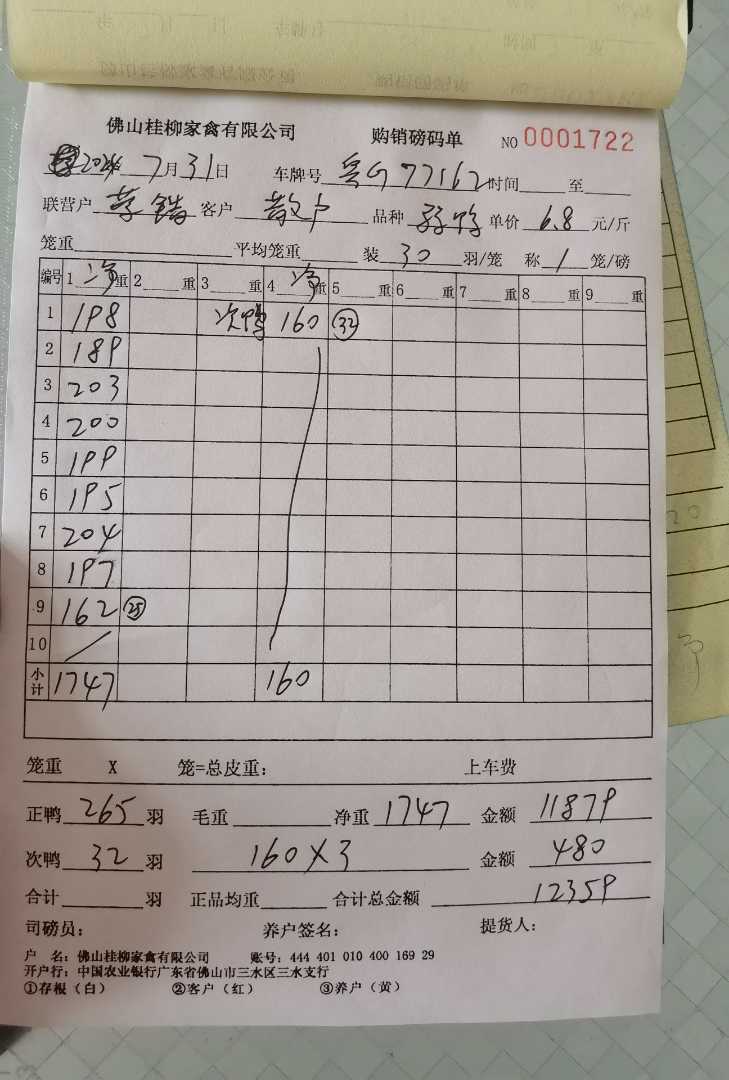 佛山桂柳家禽有限公司 购销磅码单 NO 0001722
2024 7月31日 车牌号 粤G77162 时间 至
联营户 客户 散户 品种 单价 6.8 元/斤
笼重 平均笼重 装 30 羽/笼 称 1 笼/磅
编号 1 净 重 2 重 3 重 4 净 重 5 重 6 重 7 重 8 重 9 重
1 198 次鸭 160 (32)
2 189
3 203
4 200
5 199
6 195
7 204
8 197
9 162 (25)
10
小计 1747 160
笼重 X 笼=总皮重: 上车费
正鸭 265 羽 毛重 净重 1747 金额 11879
次鸭 32 羽 160X3 金额 480
合计 羽 正品均重 合计总金额 12359
司磅员: 养户签名: 提货人:
户 名: 佛山桂柳家禽有限公司 账号: 444 401 010 400 169 29
开户行: 中国农业银行广东省佛山市三水区三水支行
①存根(白) ②客户(红) ③养户(黄)